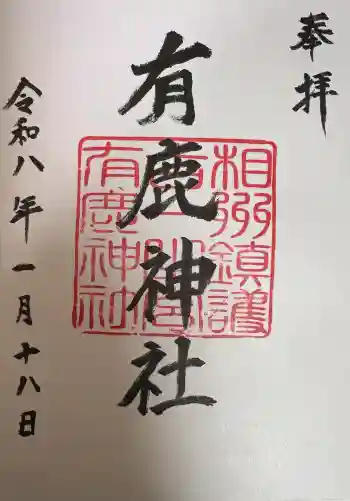 奉拝
有鹿神社
相州鎮護
有鹿神社
令和八年一月十八日